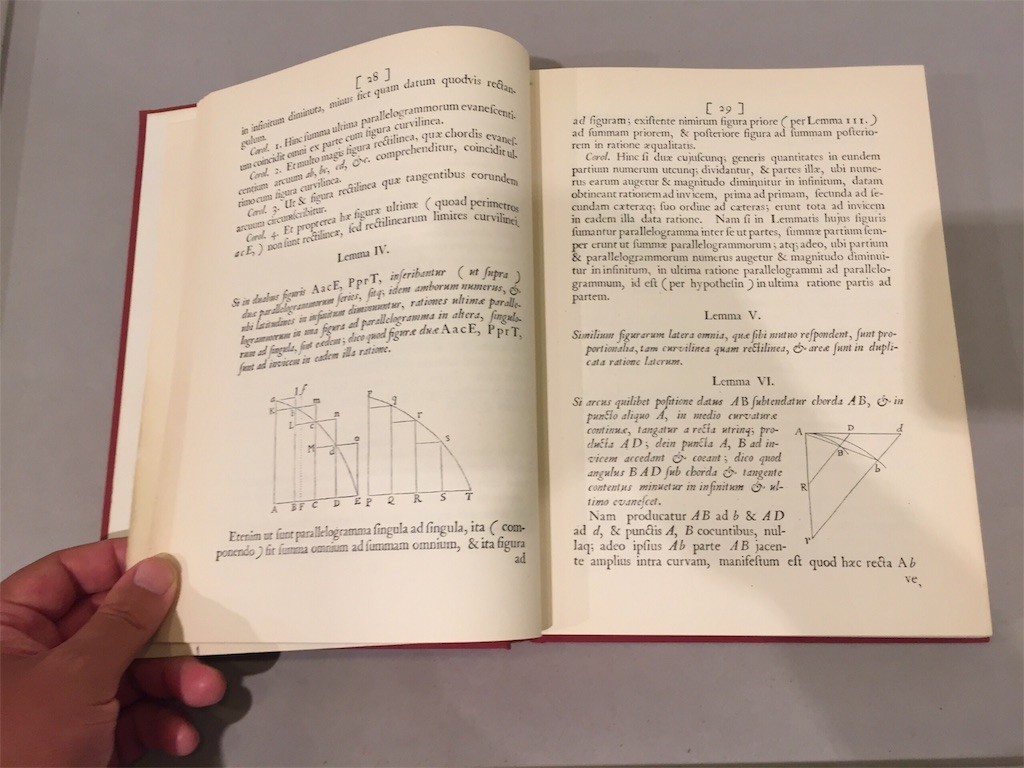 [ 28 ]
in infinitum diminuta, minus fiet quam datum quodvis rectan-
gulum.
Corol. 1. Hinc summa ultima parallelogrammorum evanescenti-
um coincidit omni ex parte cum figura curvilinea.
Corol. 2. Et multo magis figura rectilinea, quæ chordis evanes-
centium arcuum ab, bc, cd, &c. comprehenditur, coincidit ul-
timo cum figura curvilinea.
Corol. 3. Ut & figura rectilinea quæ tangentibus eorundem
arcuum circumscribitur.
Corol. 4. Et propterea hæ figuræ ultimæ ( quoad perimetros
acE, ) non sunt rectilineæ, sed rectilinearum limites curvilinei.
Lemma IV.
Si in duabus figuris AacE, PprT, inscribantur ( ut supra )
duæ parallelogrammorum series, sitq; idem amborum numerus, &
ubi latitudines in infinitum diminuuntur, rationes ultimæ paralle-
logrammorum in una figura ad parallelogramma in altera, singulo-
rum ad singula, sint eædem; dico quod figuræ duæ AacE, PprT,
sunt ad invicem in eadem illa ratione.
a l f
K b m
L c n
M d o
A B F C D E
p q r s
P Q R S T
Etenim ut sunt parallelogramma singula ad singula, ita ( com-
ponendo ) fit summa omnium ad summam omnium, & ita figura
ad
[ 29 ]
ad figuram; existente nimirum figura priore ( per Lemma III. )
ad summam priorem, & posteriore figura ad summam posterio-
rem in ratione æqualitatis.
Corol. Hinc si duæ cujuscunq; generis quantitates in eundem
partium numerum utcunq; dividantur, & partes illæ, ubi nume-
rus earum augetur & magnitudo diminuitur in infinitum, datam
obtineant rationem ad invicem, prima ad primam, secunda ad se-
cundam cæteræq; suo ordine ad cæteras; erunt tota ad invicem
in eadem illa data ratione. Nam si in Lemmatis hujus figuris
sumantur parallelogramma inter se ut partes, summæ partium sem-
per erunt ut summæ parallelogrammorum; atq; adeo, ubi partium
& parallelogrammorum numerus augetur & magnitudo diminui-
tur in infinitum, in ultima ratione parallelogrammi ad parallelo-
grammum, id est ( per hypothesin ) in ultima ratione partis ad
partem.
Lemma V.
Similium figurarum latera omnia, quæ sibi mutuo respondent, sunt pro-
portionalia, tam curvilinea quam rectilinea, & areæ sunt in dupli-
cata ratione laterum.
Lemma VI.
Si arcus quilibet positione datus AB subtendatur chorda AB, & in
puncto aliquo A, in medio curvaturæ
continuæ, tangatur a recta utrinq; pro-
ducta AD; dein puncta A, B ad in-
vicem accedant & coeant; dico quod
angulus BAD sub chorda & tangente
contentus minuetur in infinitum & ul-
timo evanescet.
A D d
B
b
R
r
Nam producatur AB ad b & AD
ad d, & punctis A, B coeuntibus, nul-
laq; adeo ipsius Ab parte AB jacen-
te amplius intra curvam, manifestum est quod hæc recta Ab
ve,